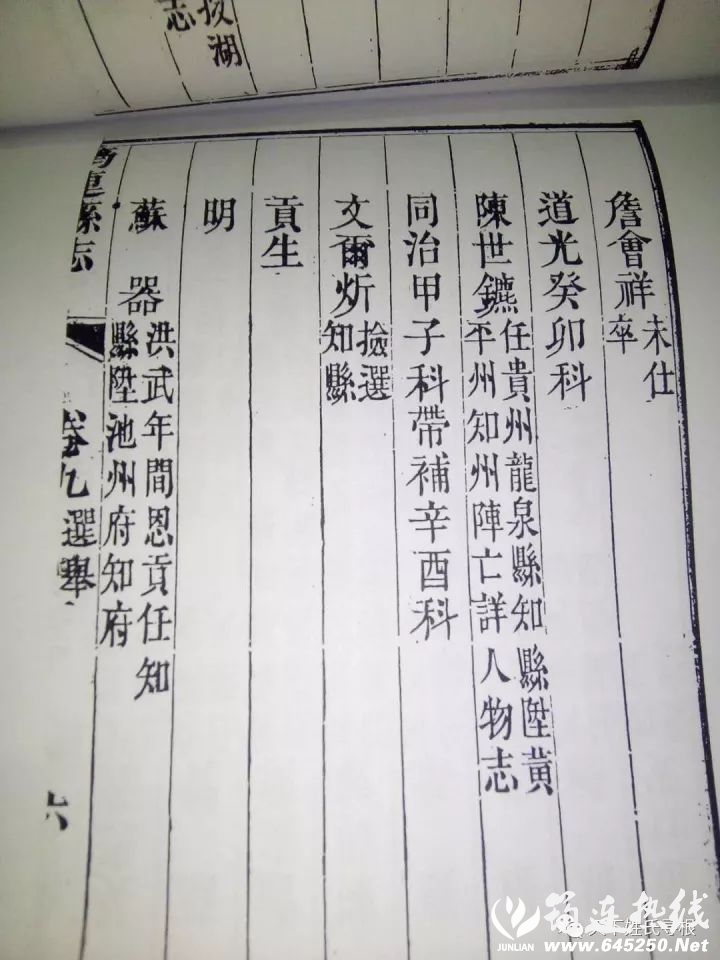 拔湖
志
詹會祥未仕
卒
道光癸卯科
陳世鑣任貴州龍泉縣知縣陞黃
平州知州陣亡詳人物志
同治甲子科帶補辛酉科
文爾炘揀選
知縣
貢生
明
蘇器洪武年間恩貢任知
縣陞池州府知府
連縣志
卷九選舉
六
筠连热线
JUNLIAN
www.645250.Net
姓氏寻根